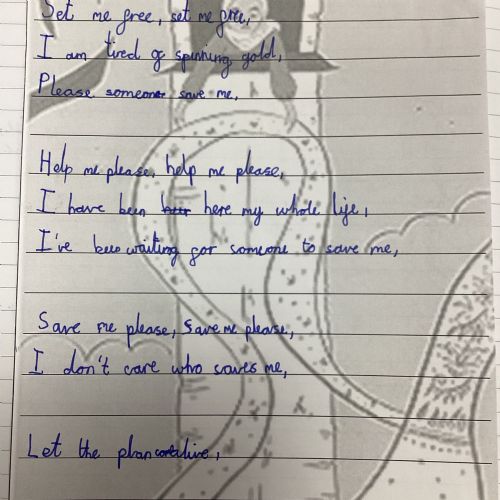 Set me free, set me free,
I am tired of spinning gold,
Please someone save me,
Help me please, help me please,
I have been here my whole life,
I've been waiting for someone to save me,
Save me please, save me please,
I don't care who saves me,
Let the plan